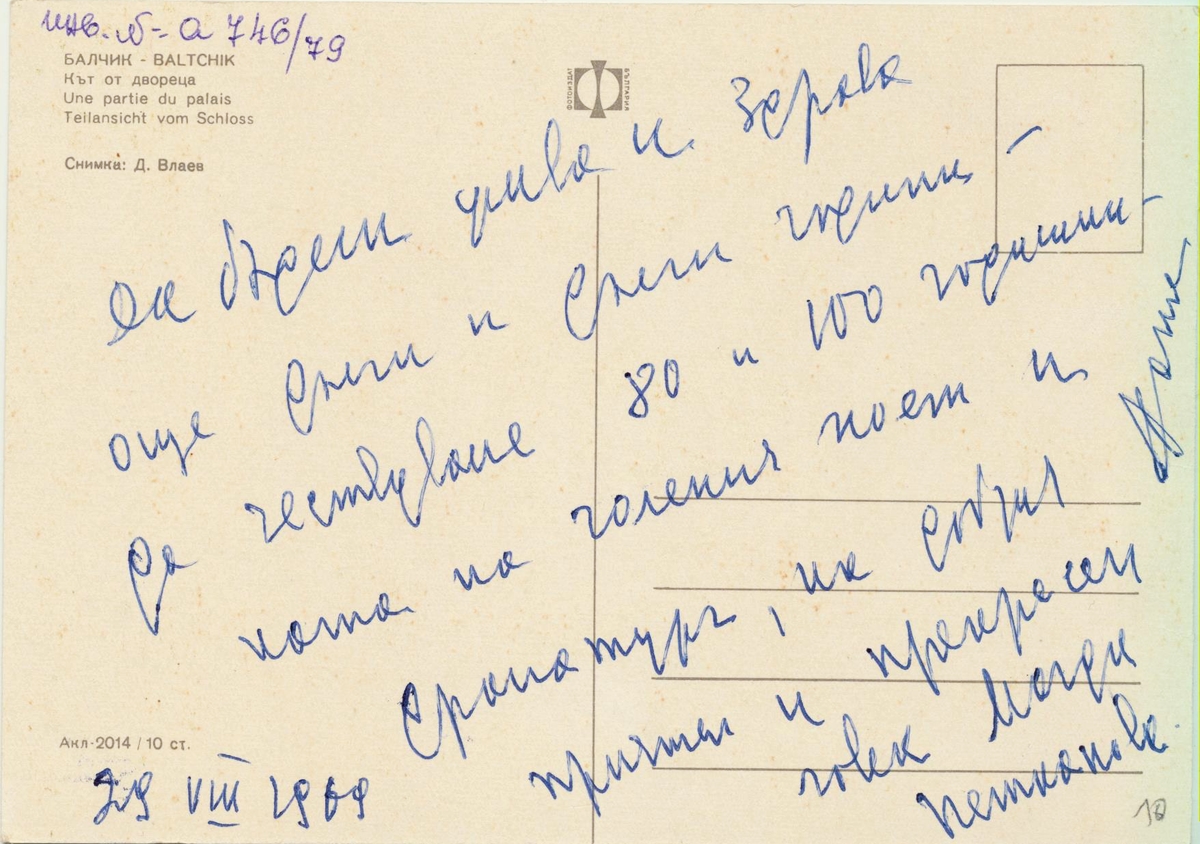 инв. № - а 746/79
БАЛЧИК - BALTCHIK
Кът от двореца
Une partie du palais
Teilansicht vom Schloss
Снимка: Д. Влаев
ФОТОИЗДАТ БЪЛГАРИЯ
Да бъдеш жива и здрава
още дълги и дълги години –
да чествуваме 80 и 100 годишни-
ната на големия поет и
драматург, на добрия
приятел и прекрасен
човек Магда
Петканова.
Акл-2014 / 10 ст.
29 VIII 1969
10